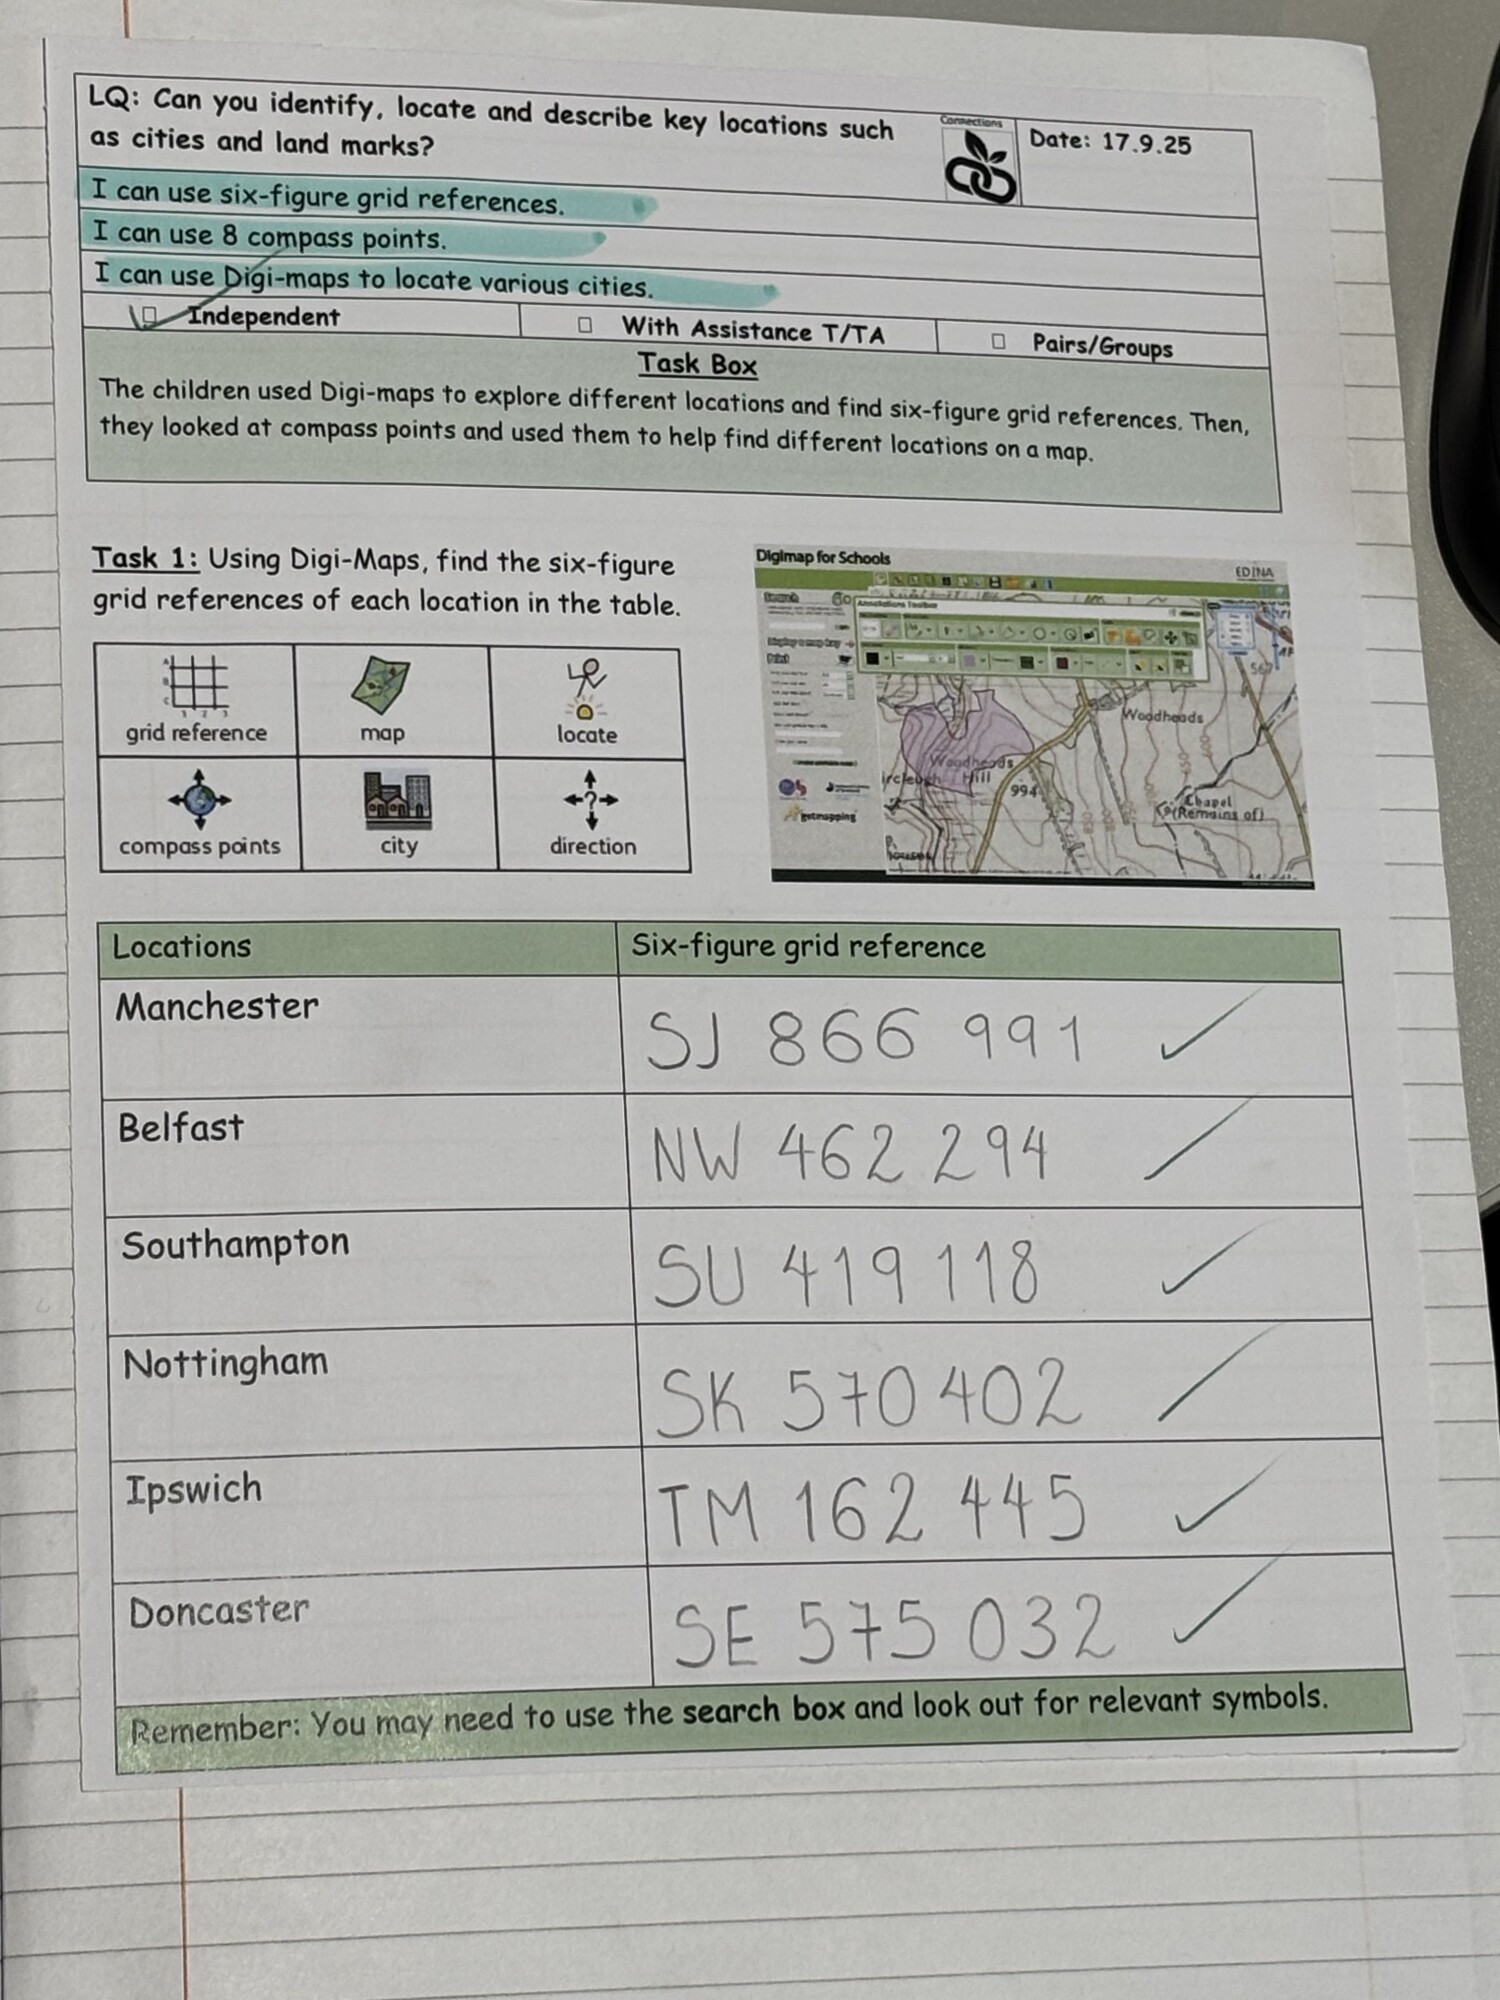 LQ: Can you identify, locate and describe key locations such
as cities and land marks?
Connections
Date: 17.9.25
I can use six-figure grid references.
I can use 8 compass points.
I can use Digi-maps to locate various cities.
Independent
With Assistance T/TA
Pairs/Groups
Task Box
The children used Digi-maps to explore different locations and find six-figure grid references. Then,
they looked at compass points and used them to help find different locations on a map.
Task 1: Using Digi-Maps, find the six-figure
grid references of each location in the table.
grid reference
map
locate
compass points
city
direction
Digimap for Schools
EDINA
Search
Go
Annotations Toolbar
Print
Woodheads
Woodheads
Hill
994
Chapel
(Remains of)
getmapping
Locations
Six-figure grid reference
Manchester
SJ 866 991
Belfast
NW 462 294
Southampton
SU 419 118
Nottingham
SK 570 402
Ipswich
TM 162 445
Doncaster
SE 575 032
Remember: You may need to use the search box and look out for relevant symbols.